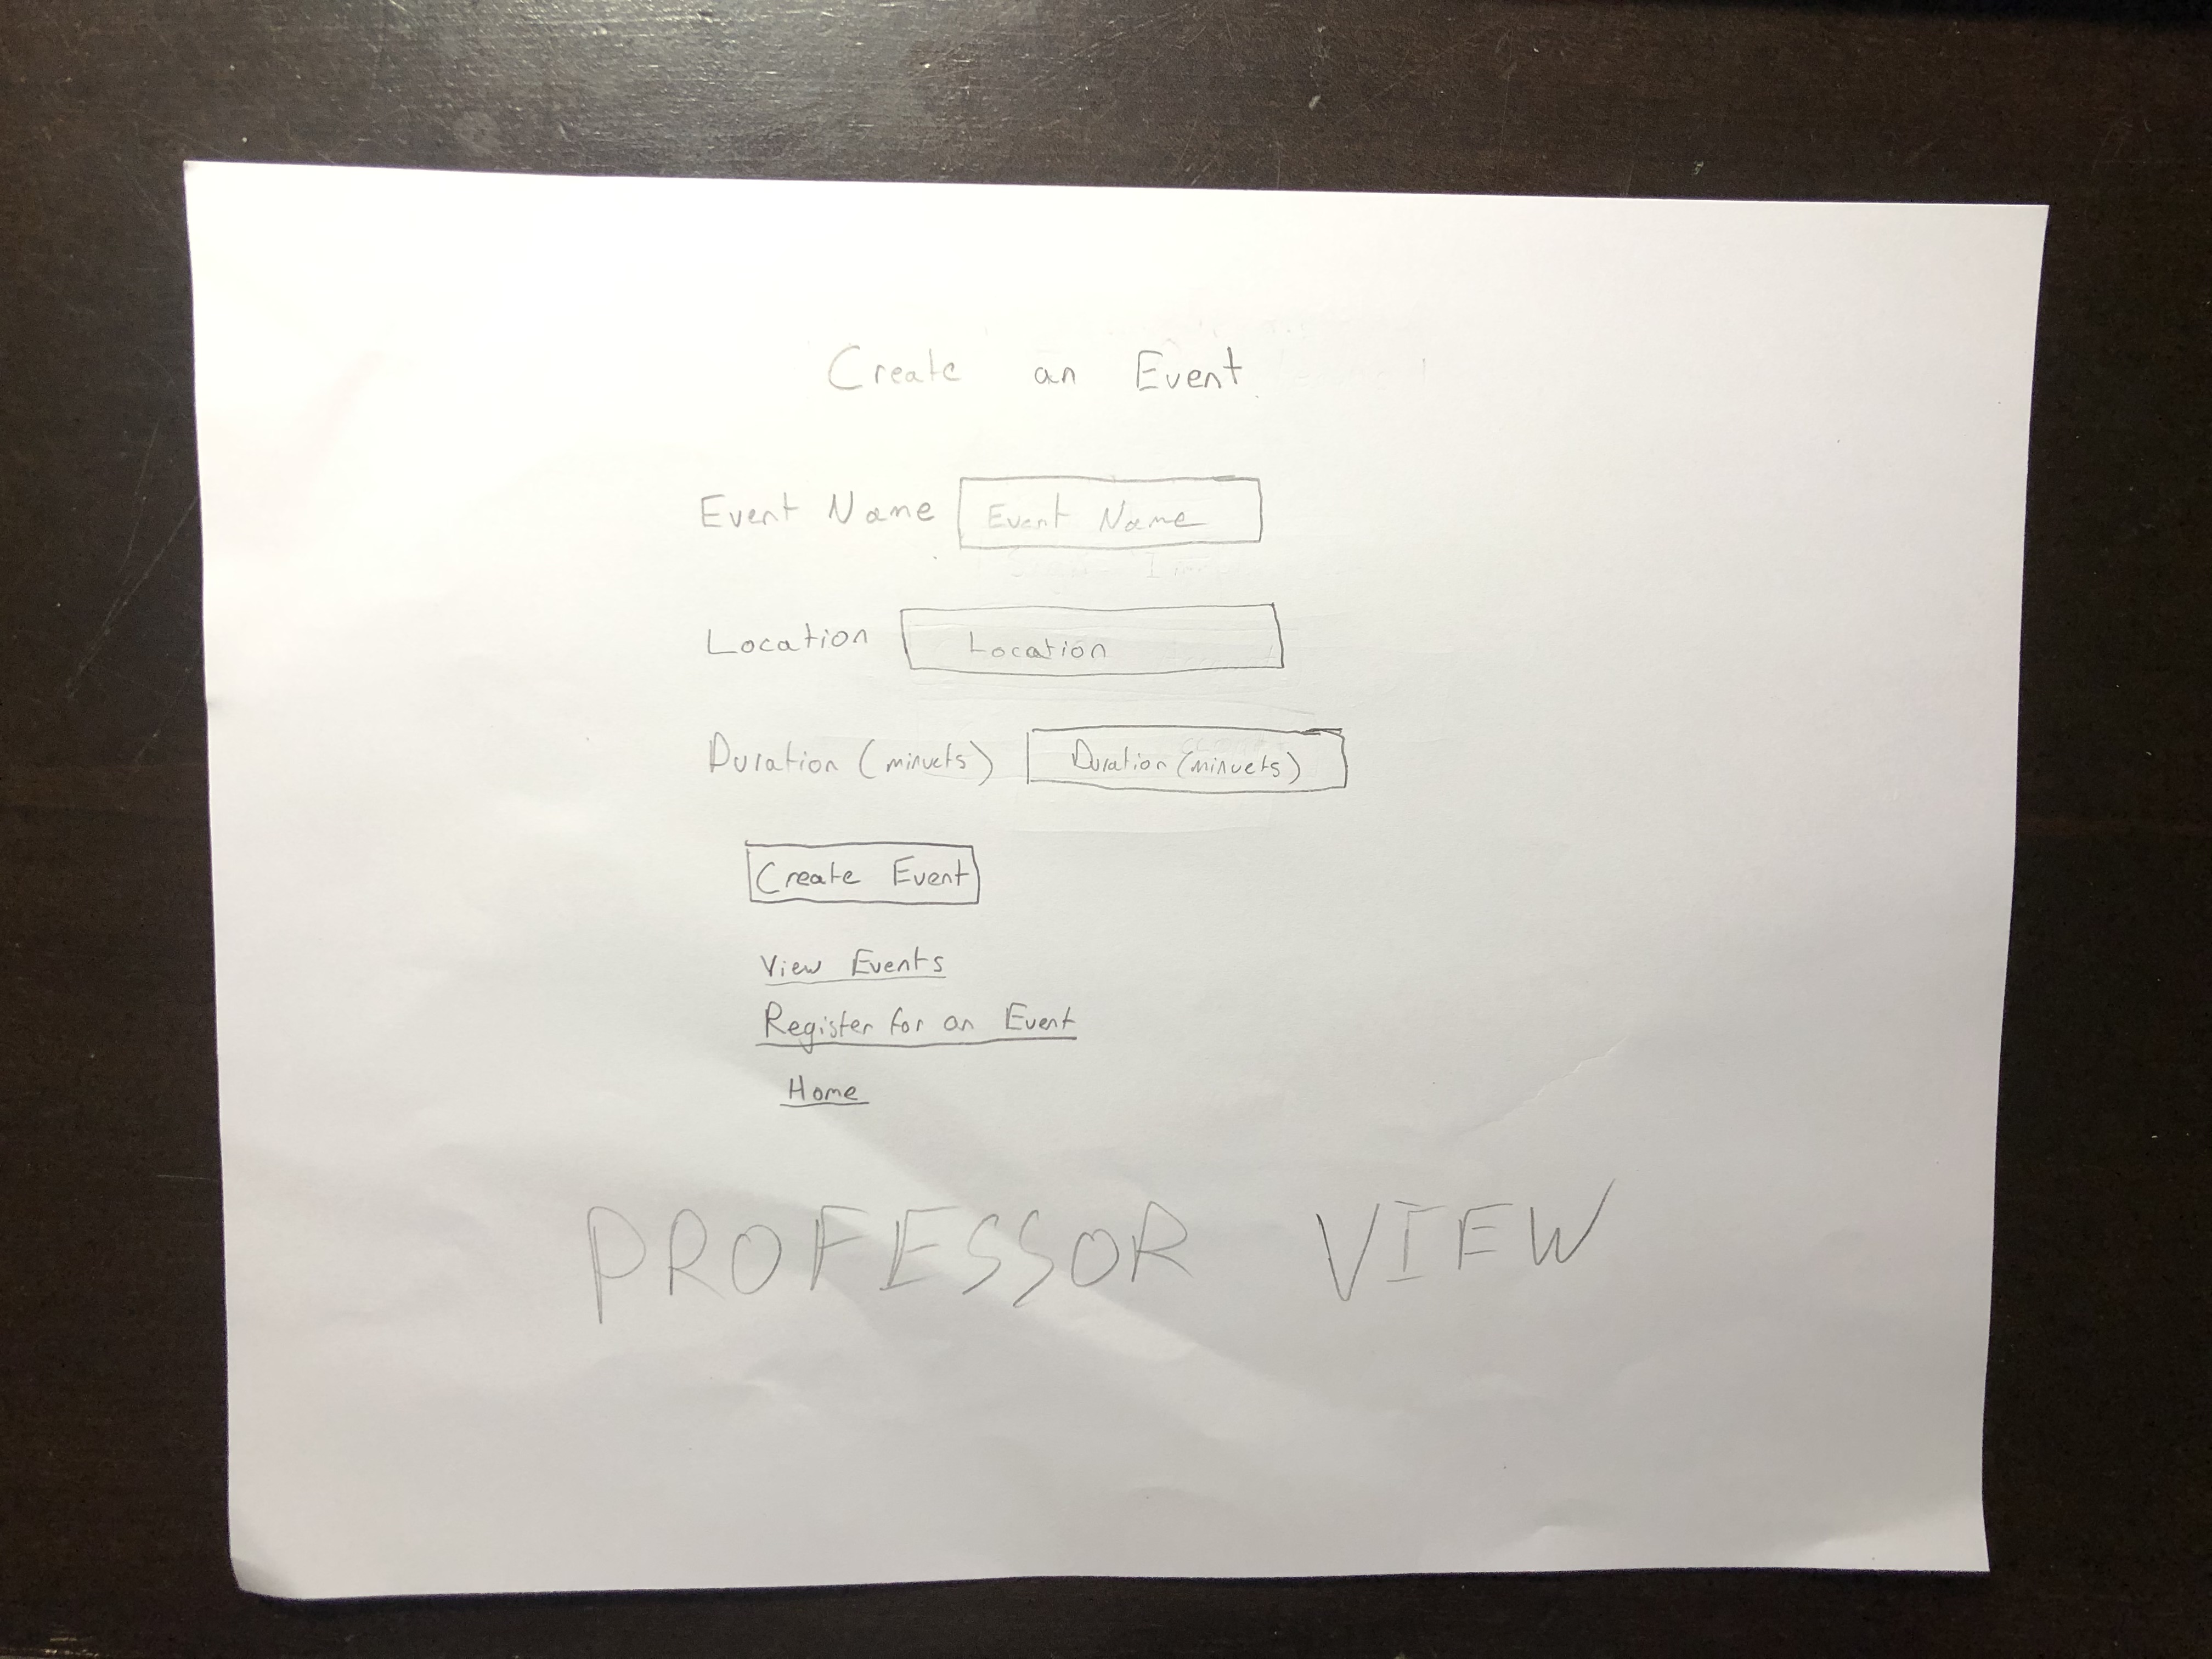 Create an Event
Event Name Event Name
Location Location
Duration (minuets) Duration (minuets)
Create Event
View Events
Register for an Event
Home
PROFESSOR VIEW